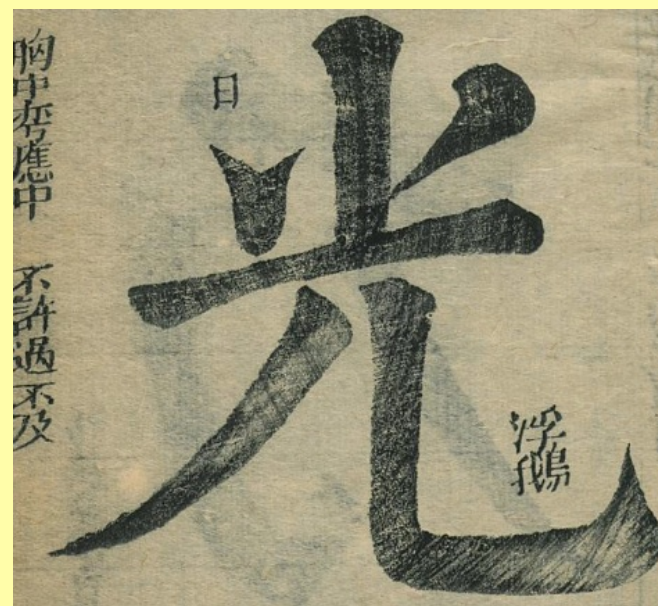 光
日
浮鵝
胸中應中 不許過不及